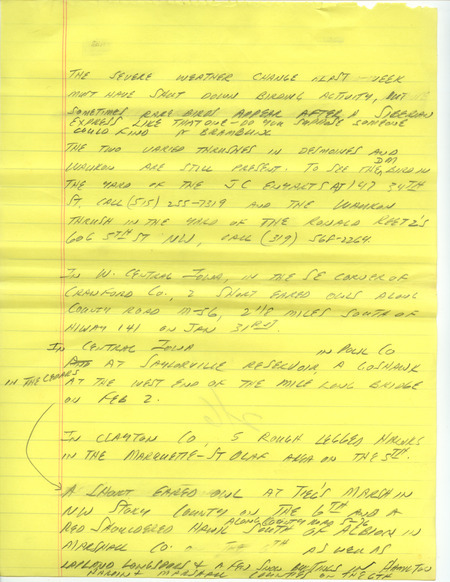 THE SEVERE WEATHER CHANGE LAST WEEK
MUST HAVE SHUT DOWN BIRDING ACTIVITY, BUT
SOMETIMES RARE BIRDS APPEAR AFTER A SIBERIAN
EXPRESS LIKE THAT ONE - DO YOU SUPPOSE SOMEONE
COULD FIND A BRAMBLING
THE TWO VARIED THRUSHES IN DESMOINES AND
WAUKON ARE STILL PRESENT. TO SEE THE DM BIRD IN
THE YARD OF THE J C ENYARTS AT 147 34TH
ST. CALL (515) 255-7319 AND THE WAUKON
THRUSH IN THE YARD OF THE RONALD REETZ'S
606 5TH ST NW, CALL (319) 568-2264.
IN W. CENTRAL IOWA, IN THE SE CORNER OF
CRAWFORD CO., 2 SHORT EARED OWLS ALONG
COUNTY ROAD M-56, 2 1/2 MILES SOUTH OF
HIWAY 141 ON JAN 31ST.
IN CENTRAL IOWA IN POLK CO
AT SAYLORVILLE RESERVOIR, A GOSHAWK
IN THE CEDARS
AT THE WEST END OF THE MILE LONG BRIDGE
ON FEB 2.
IN CLAYTON CO, 5 ROUGH LEGGED HAWKS
IN THE MARQUETTE-ST OLAF AREA ON THE 5TH.
A SHORT EARED OWL AT TJEG'S MARSH IN
NW STORY COUNTY ON THE 6TH AND A
ALONG COUNTY ROAD
RED SHOULDERED HAWK SOUTH OF ALBION IN
MARSHALL CO. AS WELL AS
LAPLAND LONGSPURS & A FEW SNOW BUNTINGS IN HAMILTON
HARDIN & MARSHALL COUNTIES ON THE 6TH